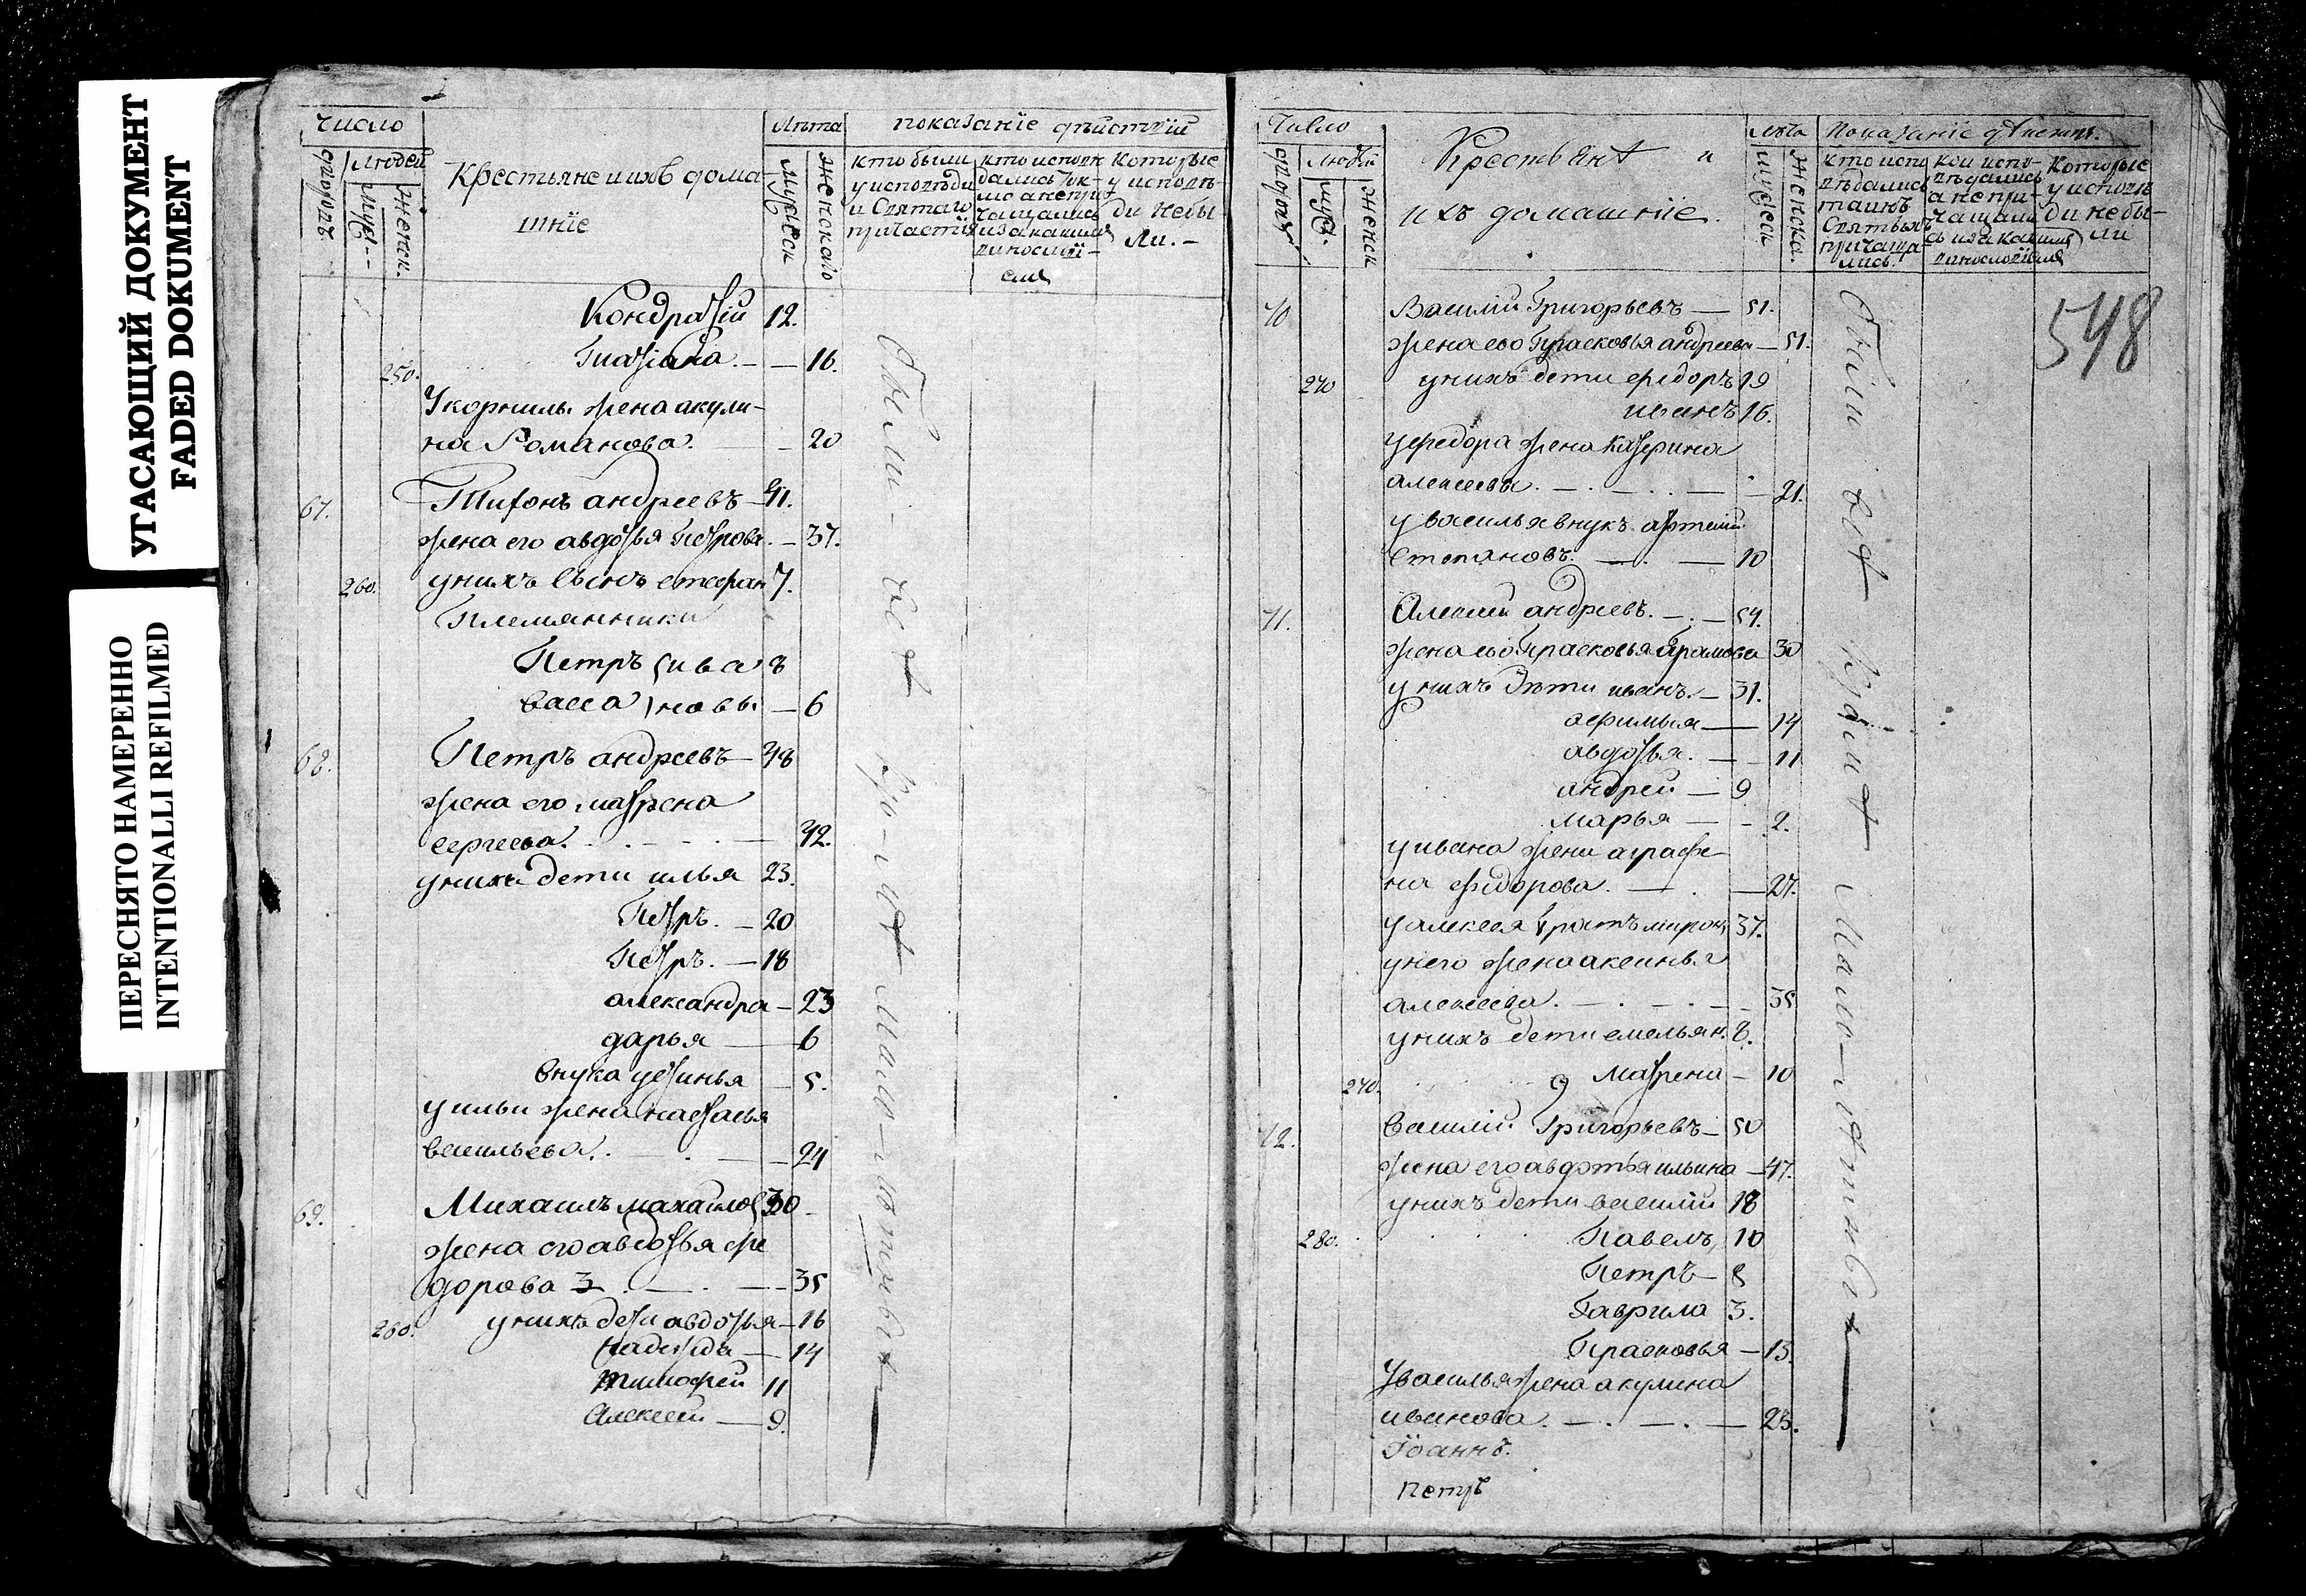 УГАСАЮЩИЙ ДОКУМЕНТ
FADED DOKUMENT
ПЕРЕСНЯТО НАМЕРЕННО
INTENTIONALLI REFILMED
Число
Лѣта
показанїе дѣйствїй
дворовъ
людей
муж--
женск.
Крестьяне и ихъ дома
шнїе
мужеск
женскаго
кто были
у исповѣди
и Святаго
причастїя
кто испов
дались ток-
мо а не при-
чащались
и за какимъ
винословї-
емъ
которые
у исповѣ-
ди не бы
ли.-
Кондратїй 12.
250. Татїана. - - 16.
У корнилы жена акули-
на Романова. - 20
67. Тихонъ андреевъ - 41.
жена его авдотья Петрова. - 37.
260. у нихъ сынъ стефан 7.
Племянники
Петръ ива 8
васса новы - 6
68. Петръ андреевъ - 48
жена его матрена
сергеева. - 42.
у нихъ дети илья 23.
Петръ. - 20
Петръ. - 18
александра - 23
дарья - 6
внука устинья - 5.
у ильи жена настасья
васильева. - 24
69. Михаилъ махаилов 30
жена его авдотья фе
дорова 3 - 35
260. у нихъ дети авдотья - 16
надежда - 14
тимофей 11
Алексей - 9.
Были всѣ
Число
дворовъ
людей
муж.
женск
Крестьянѣ и
ихъ домашнїе.
лѣта
мужеск
женска.
Показанїе дѣйствї.
кто испо
вѣдались
таинъ
Святыхъ
прича­ща
лись.
кои испо-
вѣдались
а не при-
чащали
сь и за какимъ
винословїемъ
которые
у исповѣ
ди не бы-
ли
548
70 Василїй Григорьевъ - 51.
жена его Прасковья андреева - 51.
270 у нихъ дети федоръ 19
иванъ 16.
у федора жена катерина
алексеева. - 21.
у василья внукъ артемий
Степановъ. - 10
71. Алексей андреевъ. - 54.
жена его Прасковья 30
у нихъ дѣти иванъ. - 31.
афимья - 14
авдотья. - 11
андрей - 9
марья - 2.
у ивана жена аграфе-
на федорова. - 27.
у алексея братъ мирон 37.
у него жена аксинья
алексеева. - 35
у нихъ дети емельян. 8.
270. Матрена - 10
72. Василїй Григорьевъ - 50
жена его авдотья ильина - 47.
у нихъ дети василїй 18
280. Павелъ, 10
Петръ - 8
Гаврила 3.
Прасковья - 13.
У василья жена акулина
иванова. - 23.
Іоаннъ.
Петръ
Были всѣ